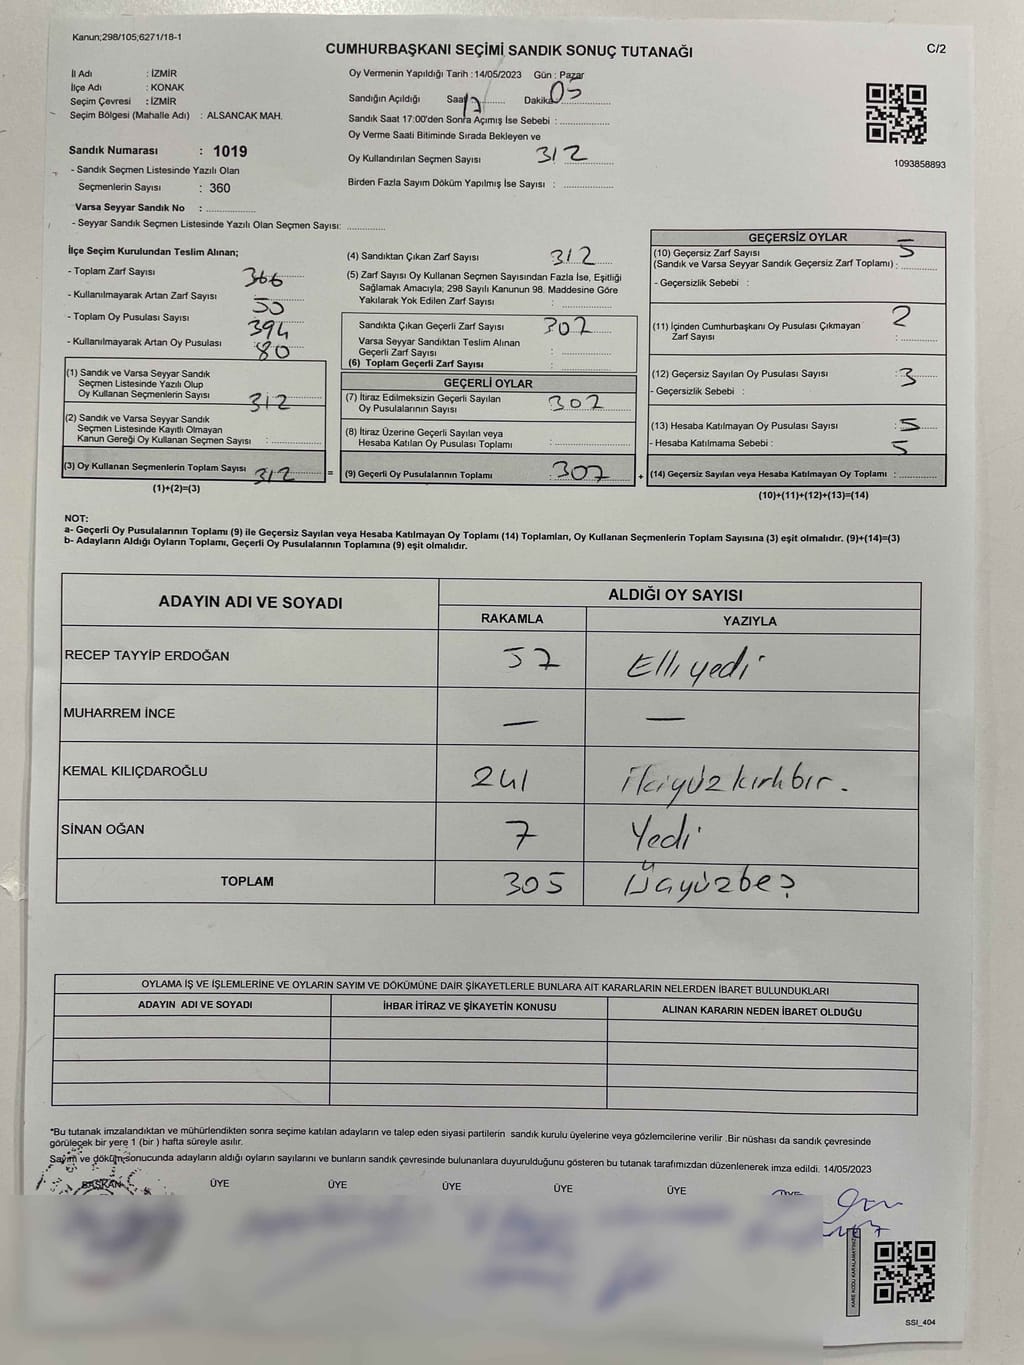 Kanun;298/105;6271/18-1
CUMHURBAŞKANI SEÇİMİ SANDIK SONUÇ TUTANAĞI
C/2
İl Adı : İZMİR
İlçe Adı : KONAK
Seçim Çevresi : İZMİR
Seçim Bölgesi (Mahalle Adı) : ALSANCAK MAH.
Sandık Numarası : 1019
- Sandık Seçmen Listesinde Yazılı Olan
Seçmenlerin Sayısı : 360
Varsa Seyyar Sandık No : ............
- Seyyar Sandık Seçmen Listesinde Yazılı Olan Seçmen Sayısı: ............
Oy Vermenin Yapıldığı Tarih : 14/05/2023 Gün : Pazar
Sandığın Açıldığı Saat 17 Dakika 05
Sandık Saat 17:00'den Sonra Açımış İse Sebebi : ............
Oy Verme Saati Bitiminde Sırada Bekleyen ve
Oy Kullandırılan Seçmen Sayısı 312
Birden Fazla Sayım Döküm Yapılmış İse Sayısı : ............
1093858893
İlçe Seçim Kurulundan Teslim Alınan;
- Toplam Zarf Sayısı 366
- Kullanılmayarak Artan Zarf Sayısı 50
- Toplam Oy Pusulası Sayısı 394
- Kullanılmayarak Artan Oy Pusulası 80
(1) Sandık ve Varsa Seyyar Sandık
Seçmen Listesinde Yazılı Olup
Oy Kullanan Seçmenlerin Sayısı 312
(2) Sandık ve Varsa Seyyar Sandık
Seçmen Listesinde Kayıtlı Olmayan
Kanun Gereği Oy Kullanan Seçmen Sayısı : ............
(3) Oy Kullanan Seçmenlerin Toplam Sayısı 312 =
(1)+(2)=(3)
(4) Sandıktan Çıkan Zarf Sayısı 312
(5) Zarf Sayısı Oy Kullanan Seçmen Sayısından Fazla İse, Eşitliği
Sağlamak Amacıyla; 298 Sayılı Kanunun 98. Maddesine Göre
Yakılarak Yok Edilen Zarf Sayısı : ............
Sandıkta Çıkan Geçerli Zarf Sayısı 307
Varsa Seyyar Sandıktan Teslim Alınan
Geçerli Zarf Sayısı : ............
(6) Toplam Geçerli Zarf Sayısı : ............
GEÇERLİ OYLAR
(7) İtiraz Edilmeksizin Geçerli Sayılan
Oy Pusulalarının Sayısı 307
(8) İtiraz Üzerine Geçerli Sayılan veya
Hesaba Katılan Oy Pusulası Toplamı : ............
(9) Geçerli Oy Pusulalarının Toplamı 307 +
GEÇERSİZ OYLAR
(10) Geçersiz Zarf Sayısı 5
(Sandık ve Varsa Seyyar Sandık Geçersiz Zarf Toplamı) : ............
- Geçersizlik Sebebi :
(11) İçinden Cumhurbaşkanı Oy Pusulası Çıkmayan 2
Zarf Sayısı : ............
(12) Geçersiz Sayılan Oy Pusulası Sayısı : 3
- Geçersizlik Sebebi :
(13) Hesaba Katılmayan Oy Pusulası Sayısı : 5
- Hesaba Katılmama Sebebi : 5
(14) Geçersiz Sayılan veya Hesaba Katılmayan Oy Toplamı : ............
(10)+(11)+(12)+(13)=(14)
NOT:
a- Geçerli Oy Pusulalarının Toplamı (9) ile Geçersiz Sayılan veya Hesaba Katılmayan Oy Toplamı (14) Toplamları, Oy Kullanan Seçmenlerin Toplam Sayısına (3) eşit olmalıdır. (9)+(14)=(3)
b- Adayların Aldığı Oyların Toplamı, Geçerli Oy Pusulalarının Toplamına (9) eşit olmalıdır.
ADAYIN ADI VE SOYADI ALDIĞI OY SAYISI
RAKAMLA YAZIYLA
RECEP TAYYİP ERDOĞAN 57 Elli yedi
MUHARREM İNCE — —
KEMAL KILIÇDAROĞLU 241 ikiyüz kırkbir.
SİNAN OĞAN 7 Yedi
TOPLAM 305 Üçyüzbeş
OYLAMA İŞ VE İŞLEMLERİNE VE OYLARIN SAYIM VE DÖKÜMÜNE DAİR ŞİKAYETLERLE BUNLARA AİT KARARLARIN NELERDEN İBARET BULUNDUKLARI
ADAYIN ADI VE SOYADI İHBAR İTİRAZ VE ŞİKAYETİN KONUSU ALINAN KARARIN NEDEN İBARET OLDUĞU
*Bu tutanak imzalandıktan ve mühürlendikten sonra seçime katılan adayların ve talep eden siyasi partilerin sandık kurulu üyelerine veya gözlemcilerine verilir .Bir nüshası da sandık çevresinde
görülecek bir yere 1 (bir ) hafta süreyle asılır.
Sayım ve döküm sonucunda adayların aldığı oyların sayılarını ve bunların sandık çevresinde bulunanlara duyurulduğunu gösteren bu tutanak tarafımızdan düzenlenerek imza edildi. 14/05/2023
BAŞKAN ÜYE ÜYE ÜYE ÜYE ÜYE
KARE KODU KARALAMAYINIZ
SSI_404